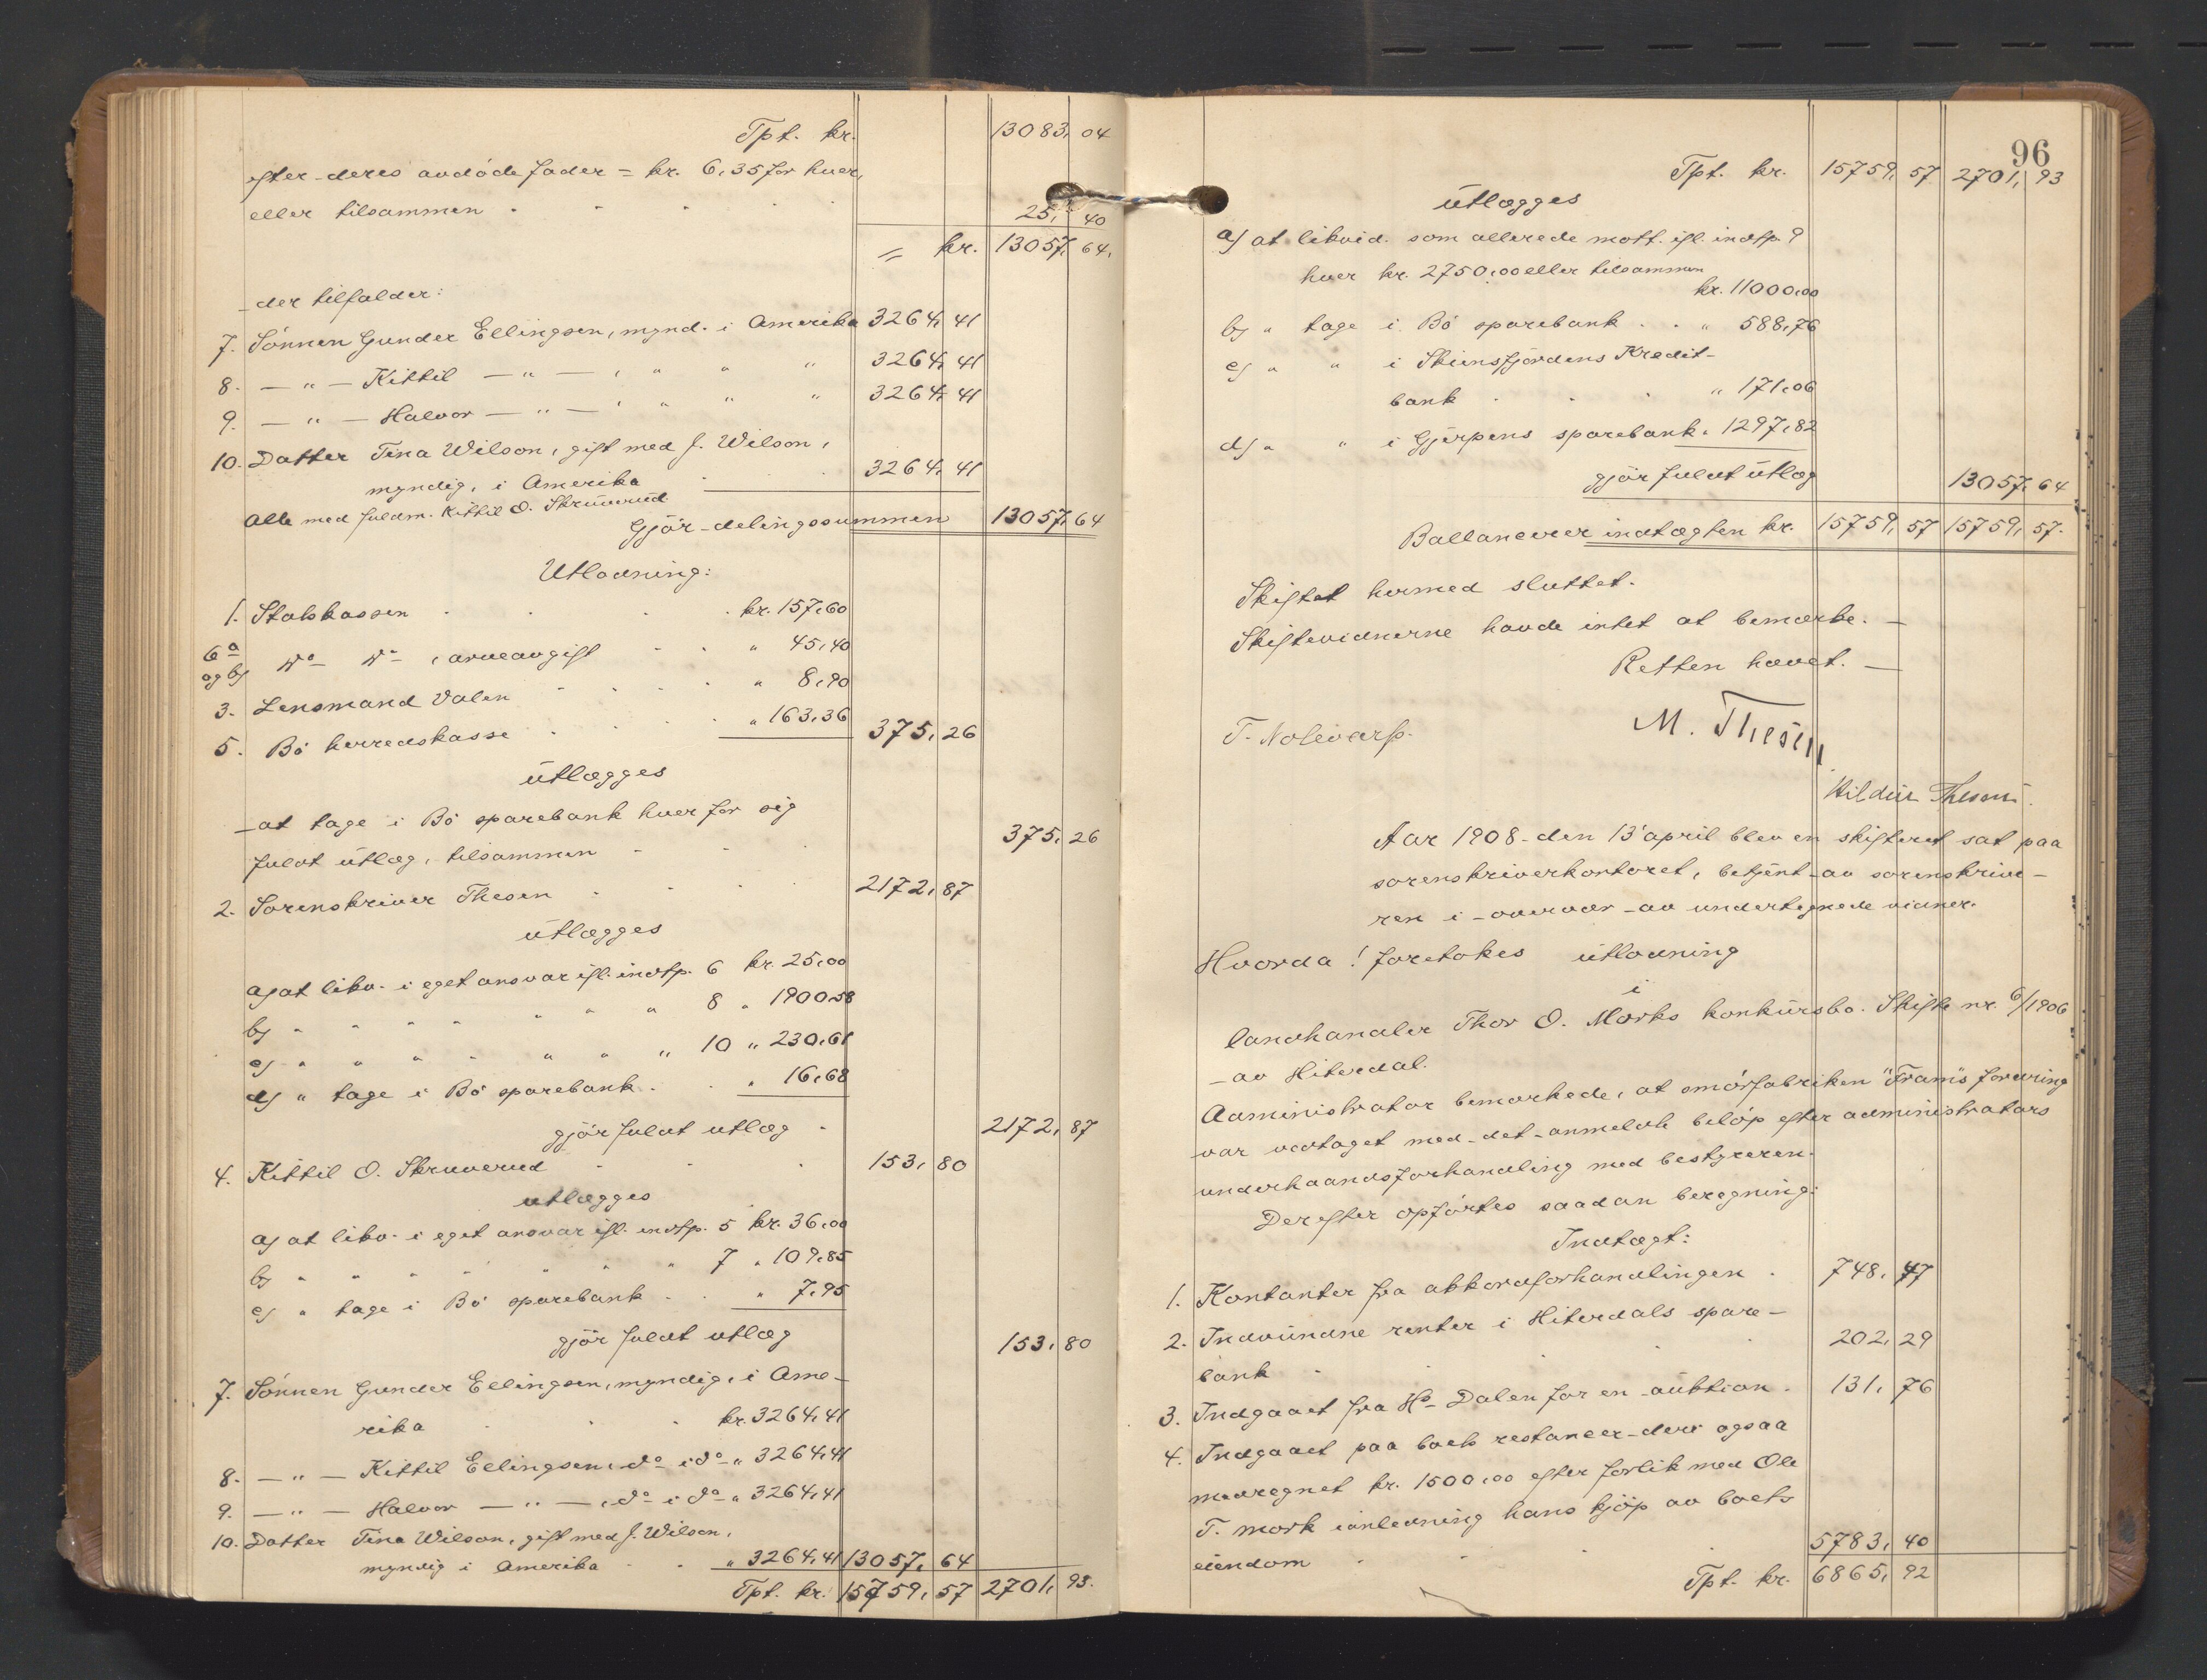 Tpt. kr. 13083, 04
efter deres avdøde fader = kr. 6,35 for hver,
eller tilsammen 25, 40
= kr. 13057, 64,
der tilfalder:
7. Sønnen Gunder Ellingsen, mynd. i Amerika 3264, 41
8. — " — Kittil — " — , " " " 3264, 41
9. — " — Halvor — " — , " " " 3264, 41
10. Datter Tina Wilson, gift med J. Wilson,
myndig, i Amerika 3264, 41
Alle med fuldm. Kittil O. Skruverud
Gjør delingssummen 13057, 64
Utlodning:
1. Statskassen kr. 157,60
6 a og b) do do, arveavgift " 45,40
3. Lensmand Valen " 8,90
5. Bø herredskasse " 163,36 375, 26
utlægges
at tage i Bø sparebank hver for sig
fuldt utlæg, tilsammen 375, 26
2. Sorenskriver Thesen 2172, 87
utlægges
a) at likv. i eget ansvar ifl. indtp. 6 kr. 25,00
b) " " " " " " " 8 " 1900,58
c) " " " " " " " 10 " 230,61
d) " tage i Bø sparebank " 16,68
gjør fuldt utlæg 2172, 87
4. Kittil O. Skruverud 153, 80
utlægges
a) at likv. i eget ansvar ifl. indtp. 5 kr. 36,00
b) " " " " " " " 7 " 109,85
c) " tage i Bø sparebank " 7,95
gjør fuldt utlæg 153, 80
7. Sønnen Gunder Ellingsen, myndig, i Ame-
rika kr. 3264,41
8. — " — Kittil Ellingsen, do i do " 3264,41
9. — " — Halvor — " — , do i do " 3264,41
10. Datter Tina Wilson, gift med J. Wilson,
myndig i Amerika " 3264,41 13057, 64
Tpt. kr. 15759, 57 2701, 93.
96
Tpt. kr. 15759, 57 2701, 93
utlægges
a) at likvid. som allerede mott. ifl. indtp. 9
hver kr. 2750,00 eller tilsammen
kr. 11000,00
b) " tage i Bø sparebank " 588,76
c) " " i Skiensfjordens Kredit-
bank " 171,06
d) " " i Gjerpens sparebank " 1297,82
gjør fuldt utlæg 13057, 64
Ballancerer indtægten kr. 15759, 57 15759, 57.
Skiftet hermed sluttet.
Skiftevidnerne havde intet at bemærke. —
Retten hævet. —
M. Thesen
T. Nolevarp.
Hildur Thesen.
Aar 1908 den 13' april blev en skifteret sat paa
sorenskriverkontoret, betjent av sorenskrive-
ren i overvær av undertegnede vidner.
Hvorda! foretokes utlodning
i
landhandler Thor O. Mørks konkursbo. Skifte nr. 6/1906
av Hiterdal.
Administrator bemerkede, at smørfabriken "Fram"s fordring
var vedtaget med det anmeldte beløp efter administrators
underhaandsforhandling med bestyreren.
Derefter opførtes saadan beregning:
Indtægt:
1. Kontanter fra akkordforhandlingen 748, 47
2. Indvundne renter i Hiterdals spare-
bank 202, 29
3. Indgaaet fra Hs Dalen for en auktion 131, 76
4. Indgaaet paa boets restancer deri ogsaa
medregnet kr. 1500,00 efter forlik med Ole
T. Mørk i anledning hans kjøp av boets
eiendom 5783, 40
Tpt. kr. 6865, 92